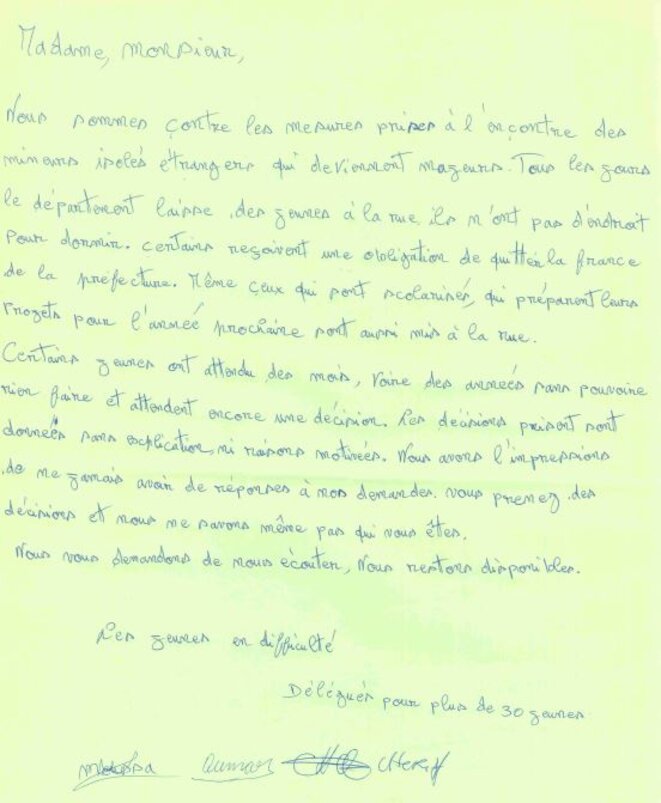 Madame, monsieur,
Nous sommes contre les mesures prises à l'encontre des
mineurs isolés étrangers qui deviennent mageurs. Tous les gours
le département laisse des geunes à la rue ils n'ont pas d'endroit
pour dormir. certains reçoivent une obligation de quitter la france
de la préfecture. Même ceux qui sont scolarisés, qui préparent leurs
Projets pour l'année prochaine sont aussi mis à la rue.
Certains geunes ont attendu des mois, voire des années sans pouvoire
rien faire et attendent encore une décision. Les décisions prisent sont
données sans explication, ni raisons motivées. Nous avons l'impressions
de ne gamais avoir de réponses à nos demandes. vous prenez des
décisions et nous ne savons même pas qui vous êtes.
Nous vous demandons de nous écouter, Nous restons disponibles.
Les geunes en difficulté
Délégués pour plus de 30 geunes
Oumar CHERIF